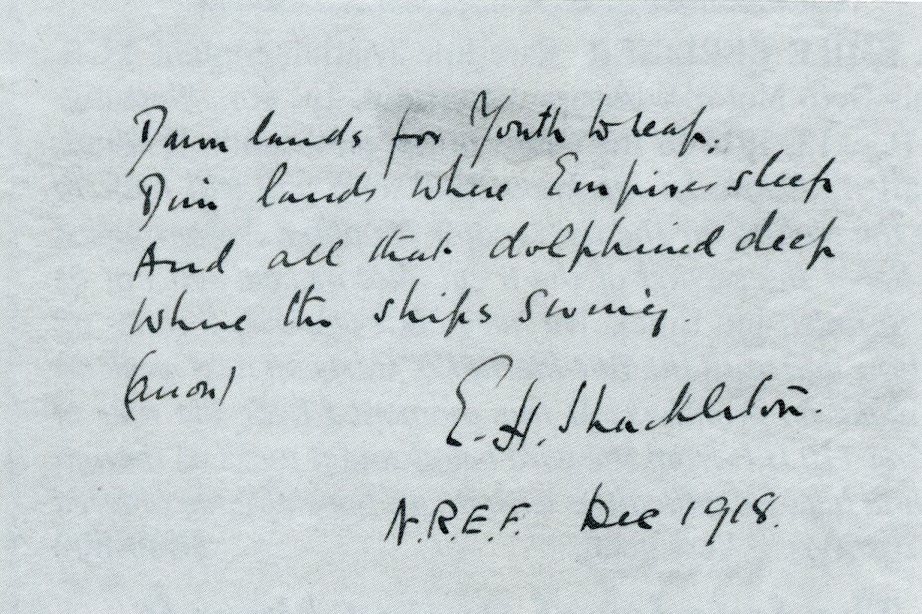 Dawn lands for Youth to reap,
Dim lands where Empires sleep
And all that dolphined deep
Where the ships swing.
(anon)
E. H. Shackleton.
N.R.E.F. Dec 1918.